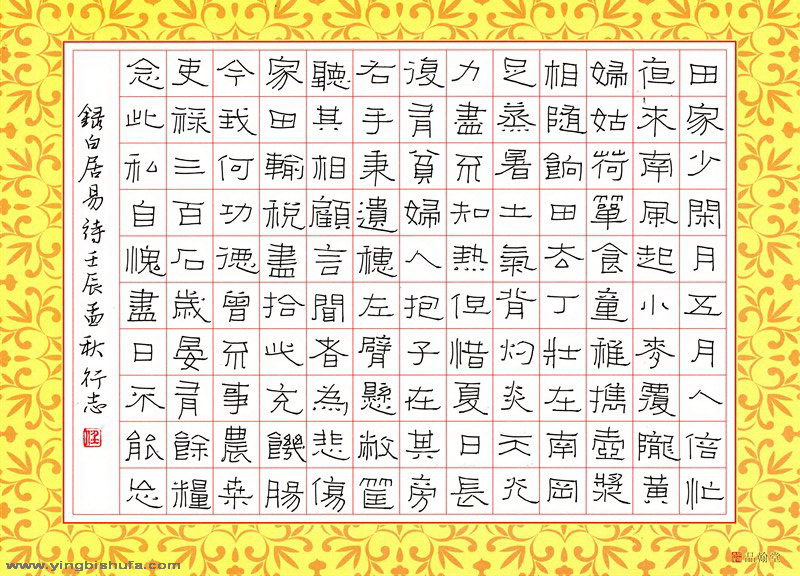 田家少閑月五月人倍忙
夜來南風起小麥覆隴黃
婦姑荷單食童稚攜壺漿
相隨餉田去丁壯在南岡
足蒸暑土氣背灼炎天光
力盡不知熱但惜夏日長
復有貧婦人抱子在其旁
右手秉遺穗左臂懸敝筐
聽其相顧言聞者為悲傷
家田輸稅盡拾此充饑腸
今我何功德曾不事農桑
吏祿三百石歲晏有餘糧
念此私自愧盡日不能忘
錄白居易詩壬辰孟秋行志
www.yingbishufa.com
品翰堂